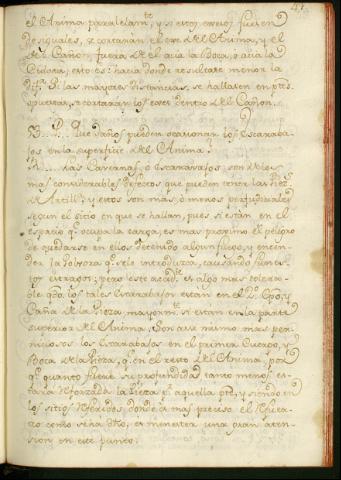 el Anima paralelam.te y si estos exesos fuesen
Desiguales, se cortarán el exe del Anima, y el
del Cañon, fuera de el ácia la Boca, ó ácia la
Culata, esto es: hacia donde resultare menor la
dif.a Si las mayores distancias, se hallaren en p.tes
opuestas, se cortarán los exes dentro del Cañon.
P... Que daños pueden ocacionar los Escaraba-
jos en la superficie del Anima?
R... Las Cavernas ó Escaravajos son de los
mas considerables defectos que pueden tener las Piez.s
de Artill.a y estos son mas, ó menos perjudiciales
segun el sitio en que se hallan, pues si estan en el
espacio q.e ocupa la carga, es mas proximo el peligro
de quedarse en ellos detenido algun fuego, y encen-
der la polvora q.e se le introduzca, causando funes-
tos estragos; pero este acsid.te es algo mas tolera-
ble q.do los tales Escarabajos estan en el 2.o Cpo, y
Caña de la Pieza, mayorm.te si estan en la parte
superior del Anima, Son asi mismo mas per-
niciosos los Escarabajos en el primer Cuerpo, y
Boca de la Pieza, q.e en el resto del Anima, por
q.e quanto fuere su profundidad tanto menos es-
tará reforzada la Pieza p.r aquella p.te, y siendo en
los sitios referidos donde es mas preciso el Refuer-
zo como se ha dho, es menester una gran aten-
sion en este punto.